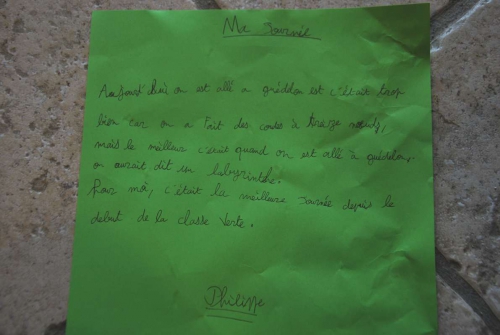 Ma Journée
Aujourd'hui on est allé a guédelon est c'était trop
bien car on a fait des cordes à treize nœuds,
mais le meilleur c'était quand on est allé à guédelon,
on aurait dit un labyrinthe.
Pour moi, c'était la meilleure journée depuis le
debut de la classe verte.
Philippe